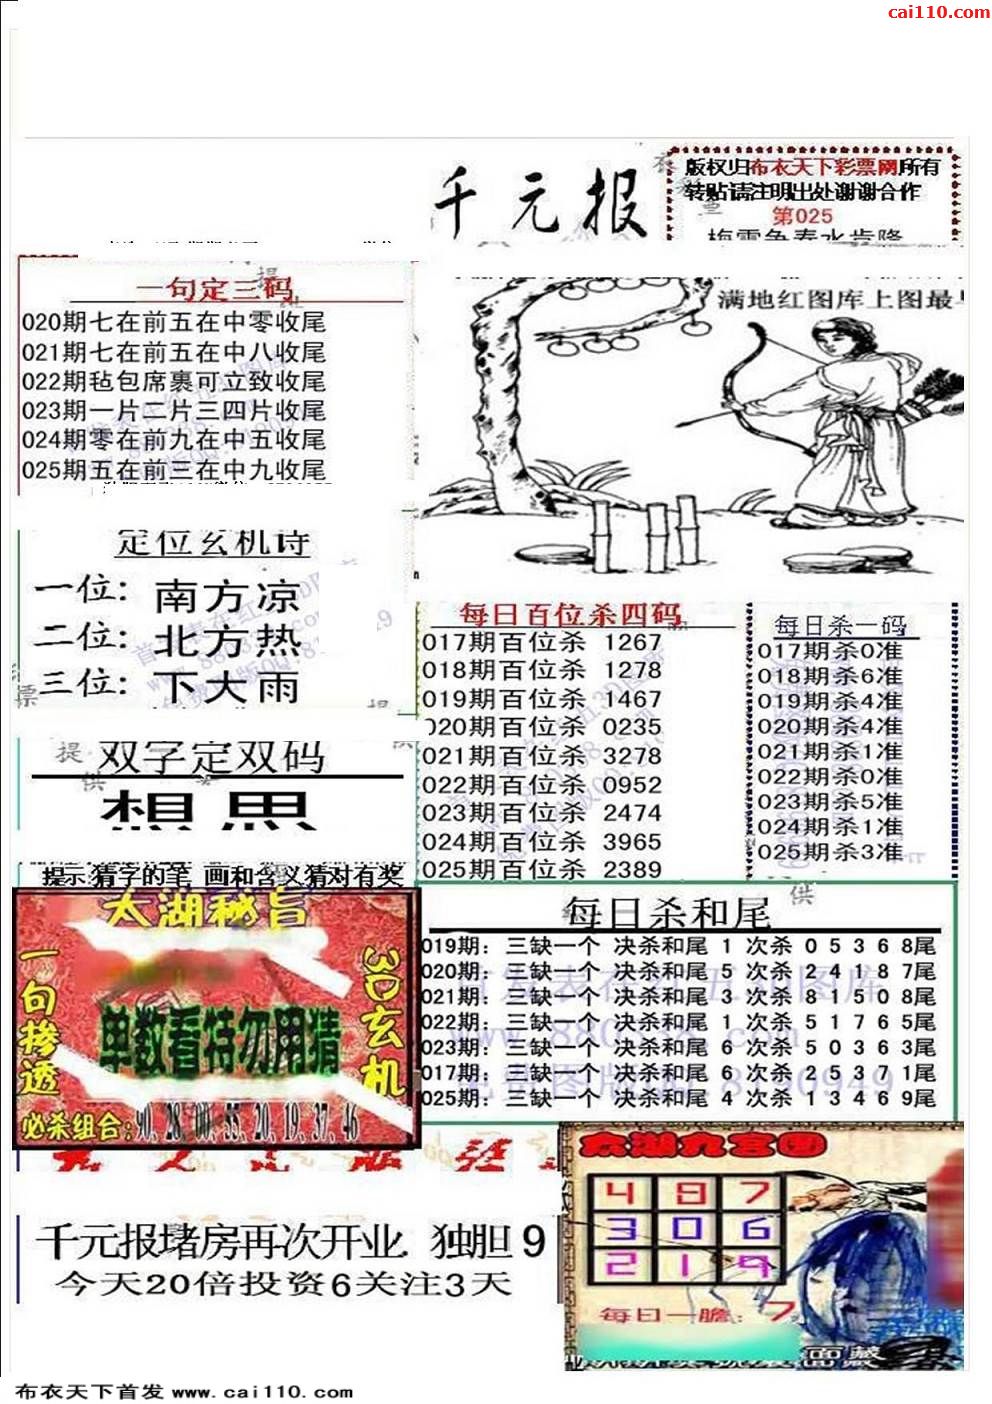 cai110.com
千元报
版权归布衣天下彩票网所有
转贴请注明出处谢谢合作
第025
梅雪争春水肯降
一句定三码
020期七在前五在中零收尾
021期七在前五在中八收尾
022期毡包席裹可立致收尾
023期一片二片三四片收尾
024期零在前九在中五收尾
025期五在前三在中九收尾
满地红图库上图最早
定位玄机诗
一位: 南方凉
二位: 北方热
三位: 下大雨
双字定双码
想思
提示:猜字的笔画和含义猜对有奖
每日百位杀四码
017期百位杀 1267
018期百位杀 1278
019期百位杀 1467
020期百位杀 0235
021期百位杀 3278
022期百位杀 0952
023期百位杀 2474
024期百位杀 3965
025期百位杀 2389
每日杀一码
017期杀0准
018期杀6准
019期杀4准
020期杀4准
021期杀1准
022期杀0准
023期杀5准
024期杀1准
025期杀3准
太湖秘旨
一句掺透
3D玄机
单数看特勿用猜
必杀组合:90.28.00.55.20.19.37.46
每日杀和尾
019期: 三缺一个 决杀和尾 1 次杀 0 5 3 6 8尾
020期: 三缺一个 决杀和尾 5 次杀 2 4 1 8 7尾
021期: 三缺一个 决杀和尾 3 次杀 8 1 5 0 8尾
022期: 三缺一个 决杀和尾 1 次杀 5 1 7 6 5尾
023期: 三缺一个 决杀和尾 6 次杀 5 0 3 6 3尾
017期: 三缺一个 决杀和尾 6 次杀 2 5 3 7 1尾
025期: 三缺一个 决杀和尾 4 次杀 1 3 4 6 9尾
千元报堵房再次开业 独胆 9
今天20倍投资6关注3天
太湖九宫图
4 8 7
3 0 6
2 1 9
每日一胆: 7
布衣天下首发 www.cai110.com